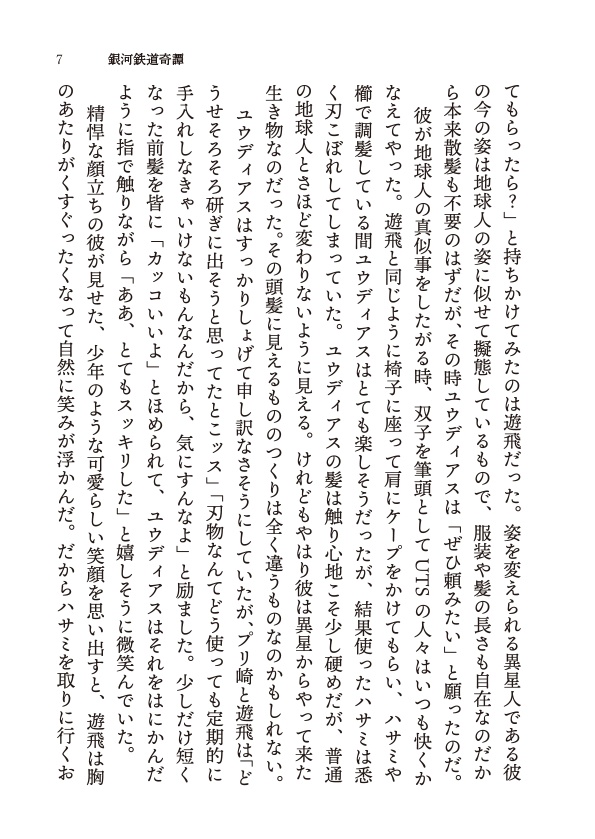 7 銀河鉄道奇譚
てもらったら？」と持ちかけてみたのは遊飛だった。姿を変えられる異星人である彼
の今の姿は地球人の姿に似せて擬態しているもので、服装や髪の長さも自在なのだか
ら本来散髪も不要のはずだが、その時ユウディアスは「ぜひ頼みたい」と願ったのだ。
彼が地球人の真似事をしたがる時、双子を筆頭としてUTSの人々はいつも快くか
なえてやった。遊飛と同じように椅子に座って肩にケープをかけてもらい、ハサミや
櫛で調髪している間ユウディアスはとても楽しそうだったが、結果使ったハサミは悉
く刃こぼれしてしまっていた。ユウディアスの髪は触り心地こそ少し硬めだが、普通
の地球人とさほど変わりないように見える。けれどもやはり彼は異星からやって来た
生き物なのだった。その頭髪に見えるもののつくりは全く違うものなのかもしれない。
ユウディアスはすっかりしょげて申し訳なさそうにしていたが、プリ崎と遊飛は「ど
うせそろそろ研ぎに出そうと思ってたとこッス」「刃物なんてどう使っても定期的に
手入れしなきゃいけないもんなんだから、気にすんなよ」と励ました。少しだけ短く
なった前髪を皆に「カッコいいよ」とほめられて、ユウディアスはそれをはにかんだ
ように指で触りながら「ああ、とてもスッキリした」と嬉しそうに微笑んでいた。
精悍な顔立ちの彼が見せた、少年のような可愛らしい笑顔を思い出すと、遊飛は胸
のあたりがくすぐったくなって自然に笑みが浮かんだ。だからハサミを取りに行くお